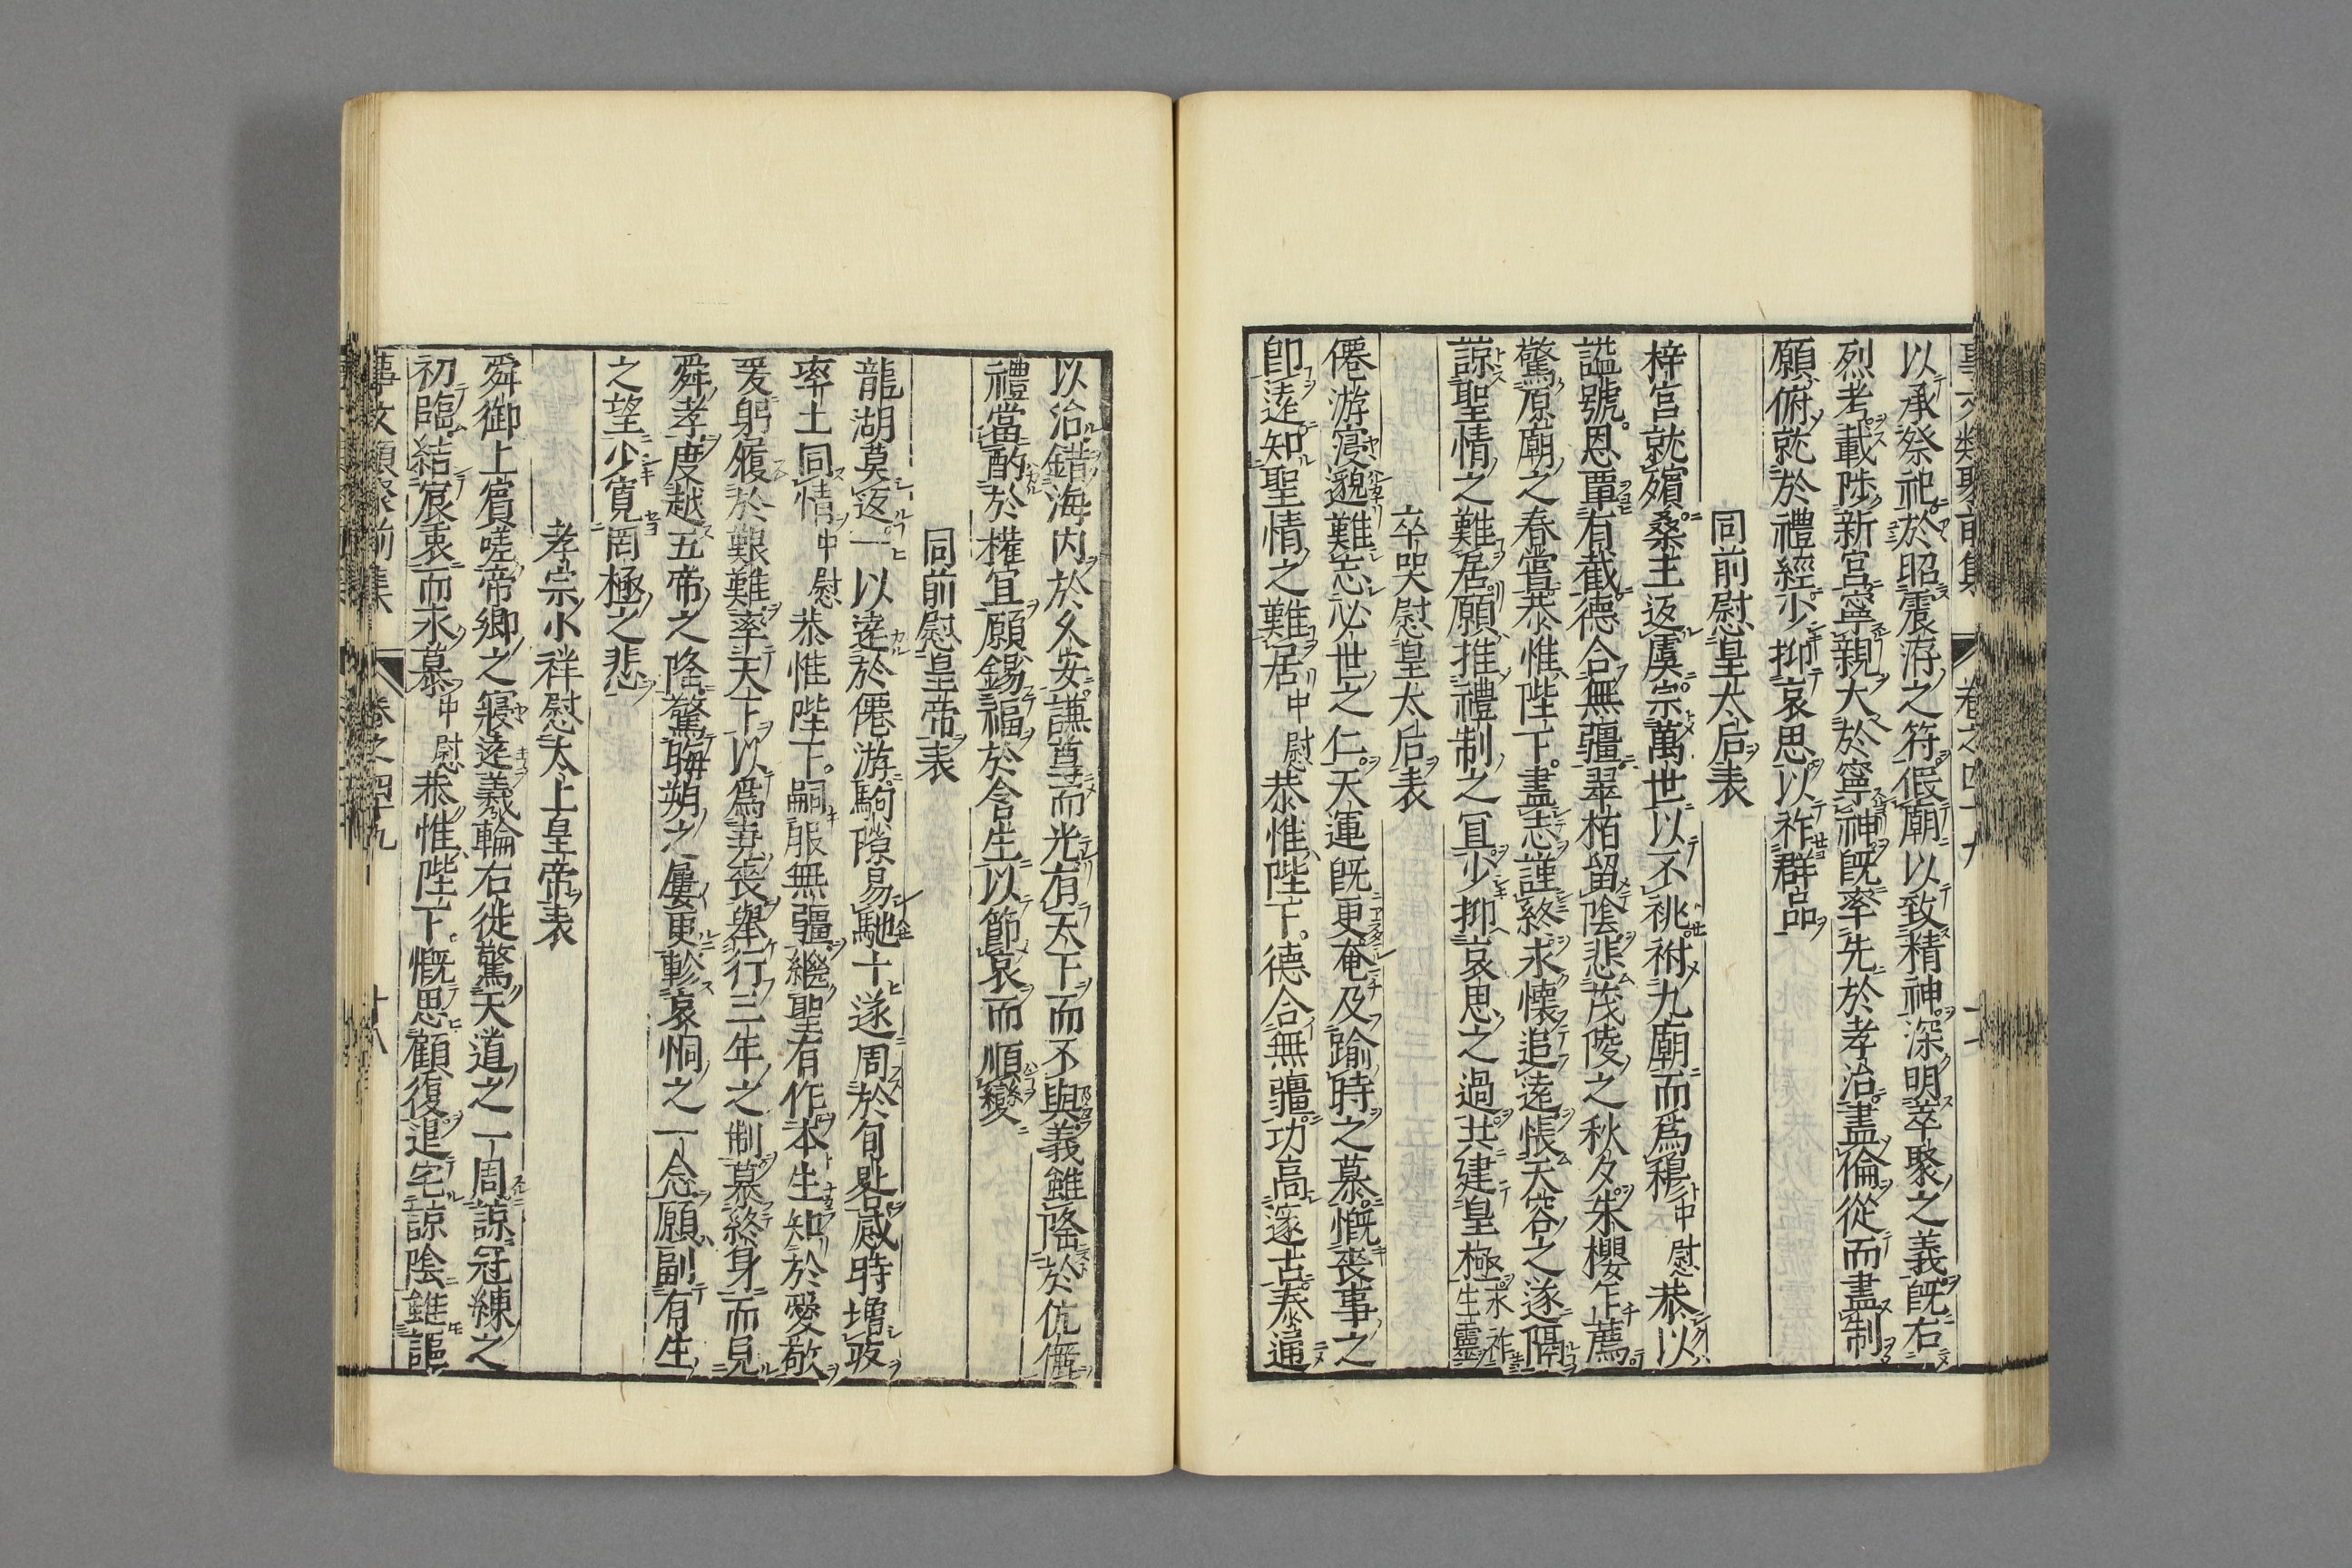 以承祭祀於昭震洊之符假廟以致精神深明萃聚之義既右
烈考載陟新宮寧親大於寧神既率先於孝治盡倫從而盡制
願俯就於禮經少抑哀思以祚群品
同前慰皇太后表
梓宮就殯桑主返虞宗萬世以不祧祔九廟而爲穆中慰恭以
謚號恩覃有截德合無疆翠栢留陰悲茂陵之秋夕朱櫻乍薦
驚原廟之春嘗恭惟陛下盡志謹終永懷追遠悵天容之遂隔
諒聖情之難居願推禮制之宜少抑哀思之過共建皇極永祚生靈
卒哭慰皇太后表
僊游寖邈難忘必世之仁天運既更奄及踰時之慕慨喪事之
卽遠知聖情之難居中慰恭惟陛下德合無疆功高邃古泰通
以洽錯海內於久安謙尊而光有天下而不與義雖隆於伉儷
禮當酌於權宜願錫福於含生以節哀而順變
同前慰皇帝表
龍湖莫返一以遠於僊游駒隙易馳十遂周於旬晷感時增歿
率土同情中慰恭惟陛下嗣服無疆繼聖有作本生知於愛敬
爰躬履於艱難率天下以爲弄喪舉行三年之制慕終身而見
舜孝度越五帝之隆驚晦朔之屢更軫哀恫之一念願副有生
之望少寬罔極之悲
孝宗小祥慰太上皇帝表
舜御上賓嗟帝鄉之寖遠義輪右徙驚天道之一周諒冠練之
初臨結宸衷而永慕中慰恭惟陛下慨思顧復退宅諒陰雖謳
事文類聚前集 卷之四十九 十八